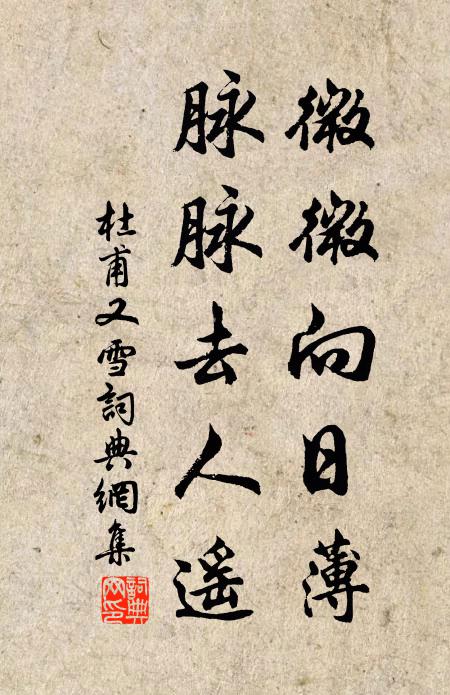 微微向日薄
脉脉去人遥
杜甫又雪詞典網集
詞典网印